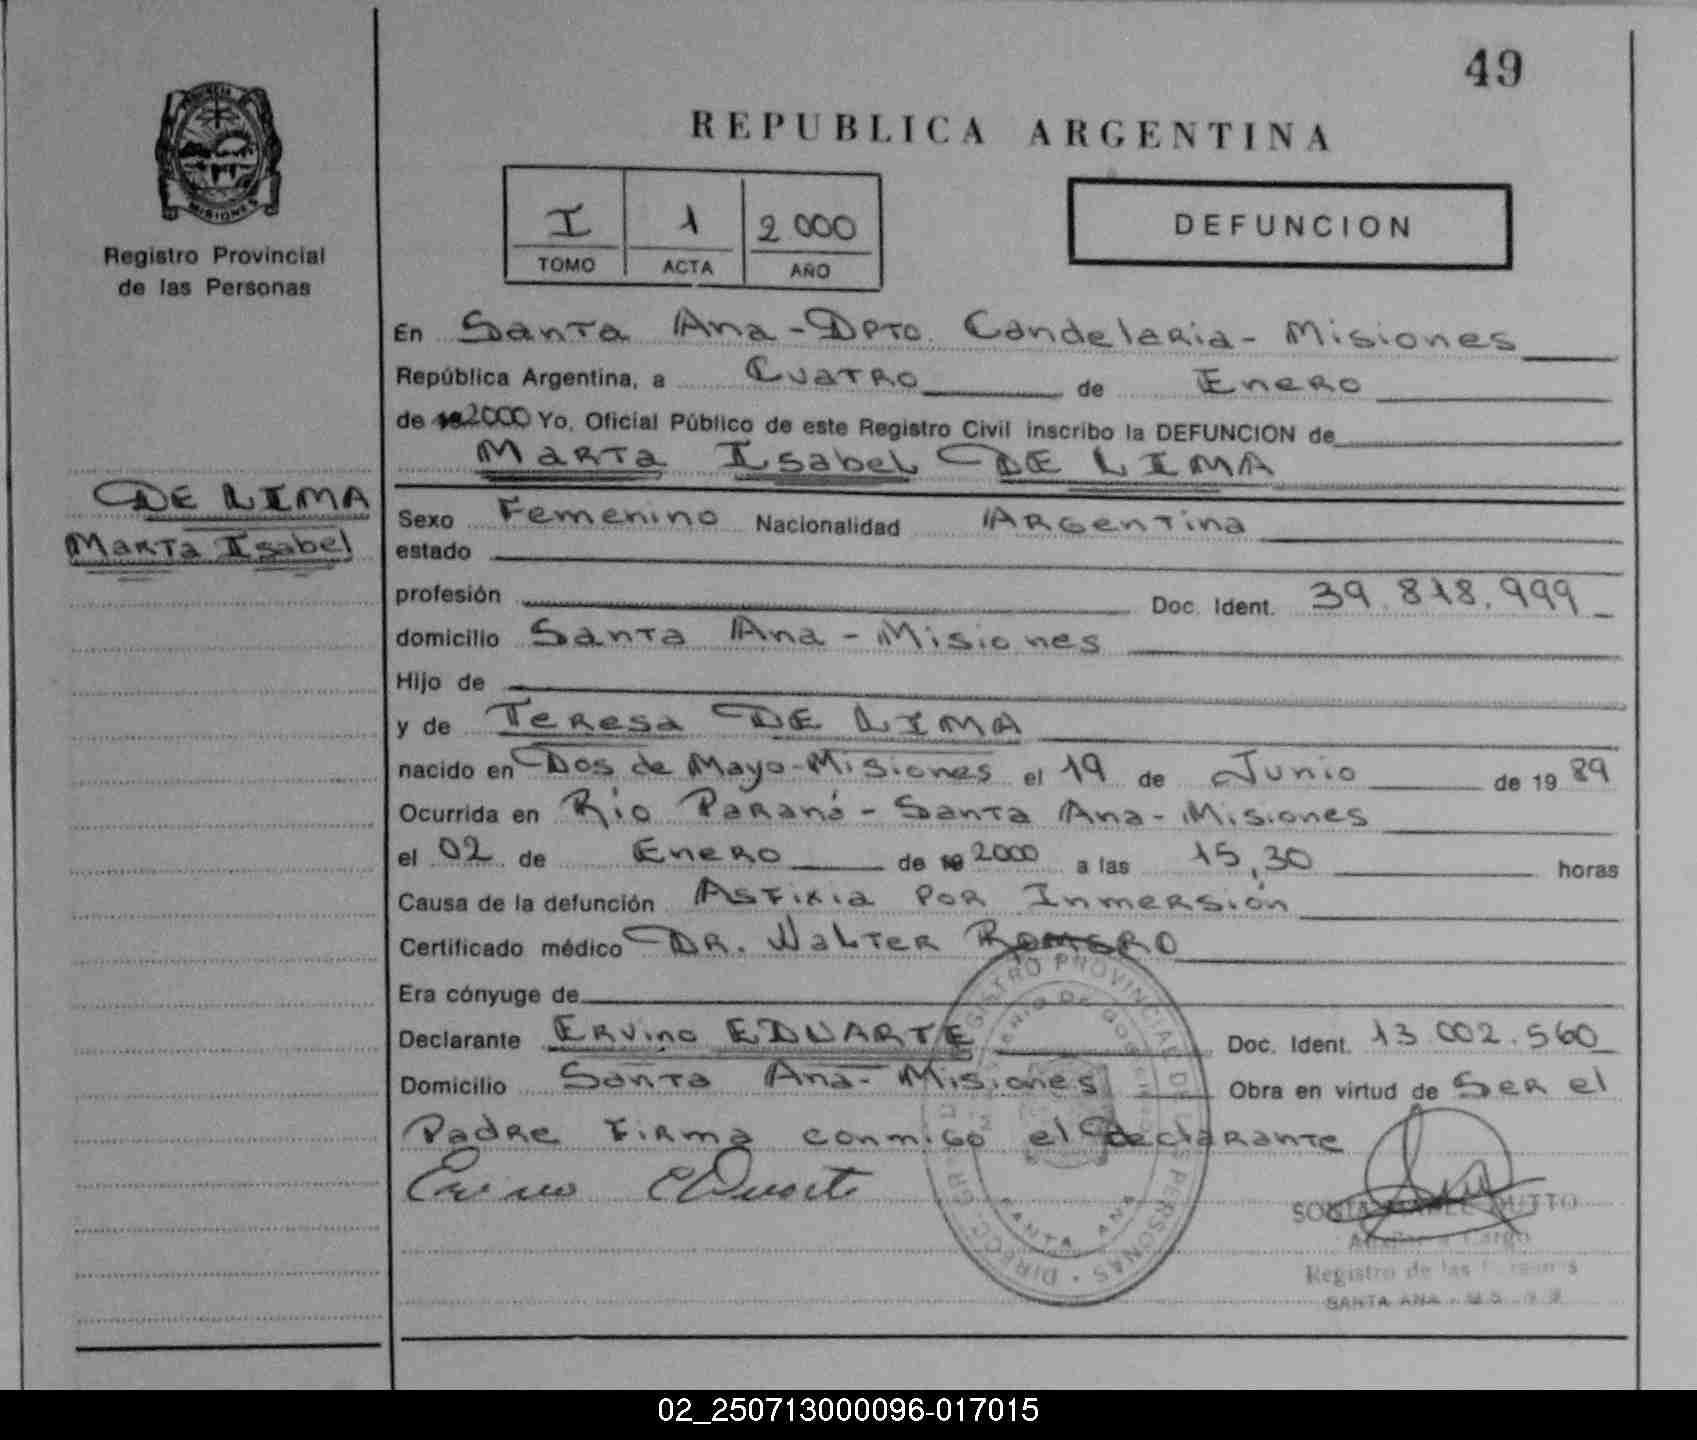 49
REPUBLICA ARGENTINA
PROVINCIA DE
MISIONES
Registro Provincial
de las Personas
I 1 2.000
TOMO ACTA AÑO
DEFUNCION
En Santa Ana - Dpto. Candelaria - Misiones
República Argentina, a Cuatro de Enero
de 2000 Yo, Oficial Público de este Registro Civil inscribo la DEFUNCION de
Marta Isabel DE LIMA
DE LIMA
Marta Isabel
Sexo Femenino Nacionalidad Argentina
estado
profesión Doc. Ident. 39.818.999
domicilio Santa Ana - Misiones
Hijo de
y de Teresa DE LIMA
nacido en Dos de Mayo - Misiones el 19 de Junio de 19 89
Ocurrida en Río Paraná - Santa Ana - Misiones
el 02 de Enero de 2000 a las 15,30 horas
Causa de la defunción Asfixia por Inmersión
Certificado médico DR. Walter Romero
Era cónyuge de
Declarante Ervino EDUARTE Doc. Ident. 13.002.560
Domicilio Santa Ana - Misiones Obra en virtud de Ser el
Padre Firma conmigo el declarante
Ervino Eduarte
REGISTRO PROVINCIAL DE LAS PERSONAS
SANTA ANA
Registro de las
SANTA ANA
02_250713000096-017015